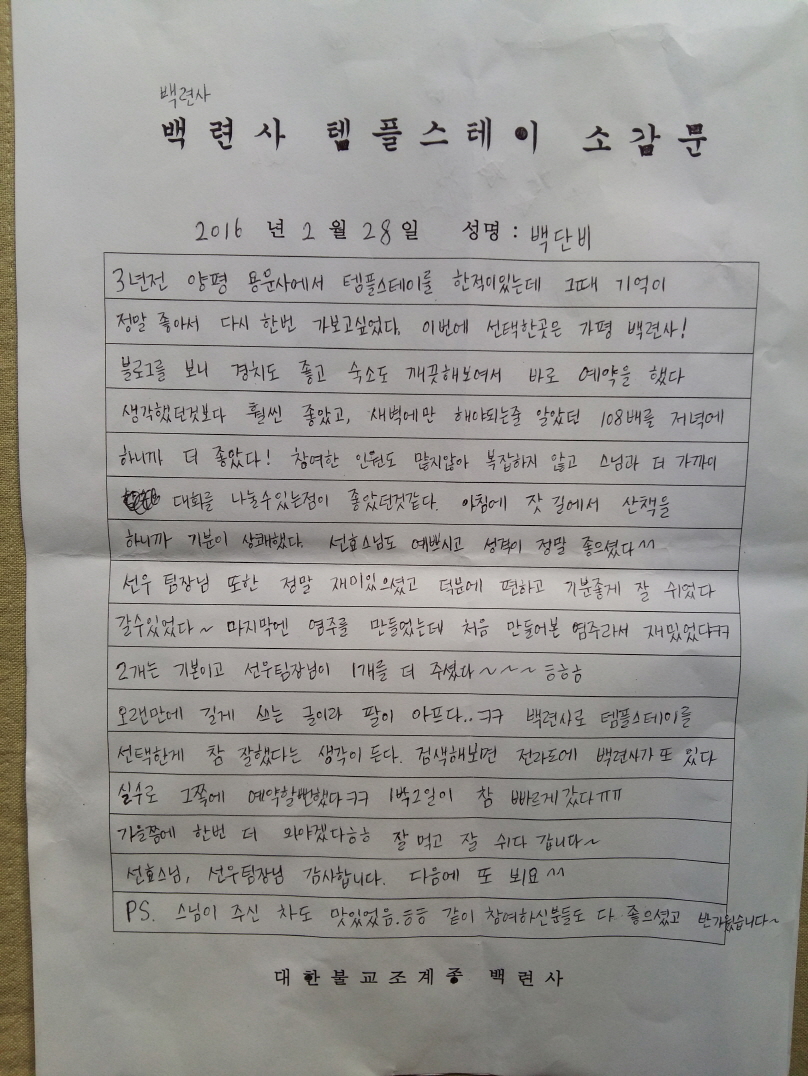 백련사
백련사 템플스테이 소감문
2016 년 2 월 28 일 성명 : 백단비
3년전 양평 용문사에서 템플스테이를 한적이있는데 그때 기억이
정말 좋아서 다시 한번 가보고싶었다. 이번에 선택한곳은 가평 백련사!
블로그를 보니 경치도 좋고 숙소도 깨끗해보여서 바로 예약을 했다
생각했던것보다 훨씬 좋았고, 새벽에만 해야되는줄 알았던 108배를 저녁에
하니까 더 좋았다! 참여한 인원도 많지않아 복잡하지 않고 스님과 더 가까이
대화를 나눌수있는점이 좋았던것같다. 아침에 잣 길에서 산책을
하니까 기분이 상쾌했다. 선효스님도 예쁘시고 성격이 정말 좋으셨다^^
선우 팀장님 또한 정말 재미있으셨고 덕분에 편하고 기분좋게 잘 쉬었다
갈수있었다~ 마지막엔 염주를 만들었는데 처음 만들어본 염주라서 재밌었다ㅋㅋ
2개는 기본이고 선우팀장님이 1개를 더 주셨다~~~ ㅎㅎㅎ
오랜만에 길게 쓰는 글이라 팔이 아프다..ㅋㅋ 백련사로 템플스테이를
선택한게 참 잘했다는 생각이 든다. 검색해보면 전라도에 백련사가 또 있다
실수로 그쪽에 예약할뻔했다ㅋㅋ 1박2일이 참 빠르게 갔다ㅠㅠ
가을쯤에 한번 더 와야겠다ㅎㅎ 잘 먹고 잘 쉬다 갑니다~
선효스님, 선우팀장님 감사합니다. 다음에 또 뵈요^^
PS. 스님이 주신 차도 맛있었음.ㅎㅎ 같이 참여하신분들도 다 좋으셨고 반가웠습니다~
대한불교조계종 백련사